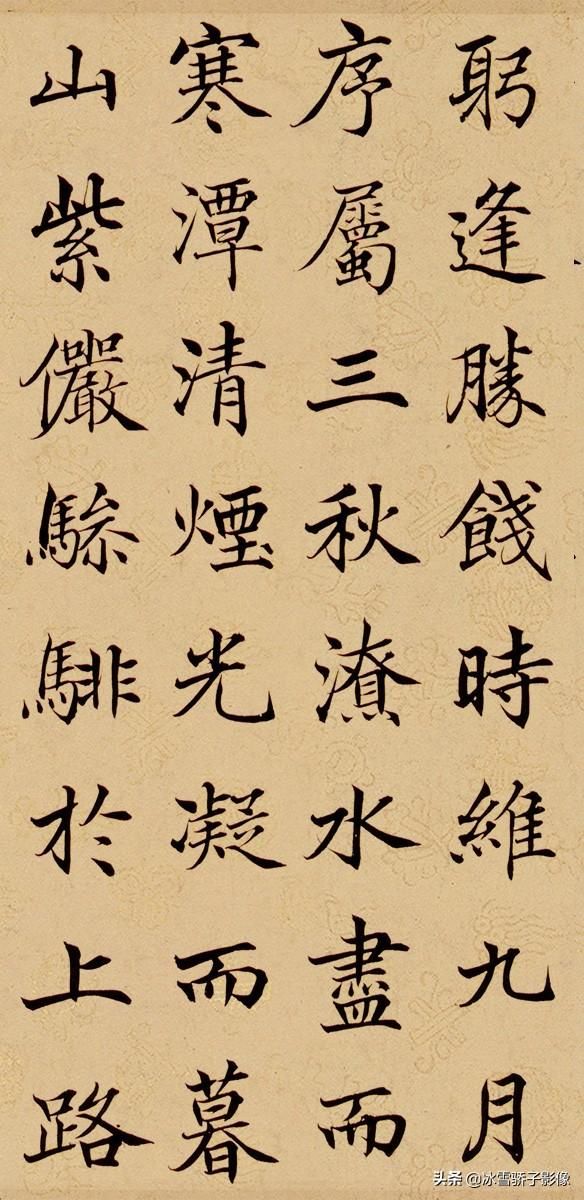 躬逢勝餞時維九月
序屬三秋潦水盡而
寒潭清煙光凝而暮
山紫儼驂騑於上路
头条 @冰雪骄子影像